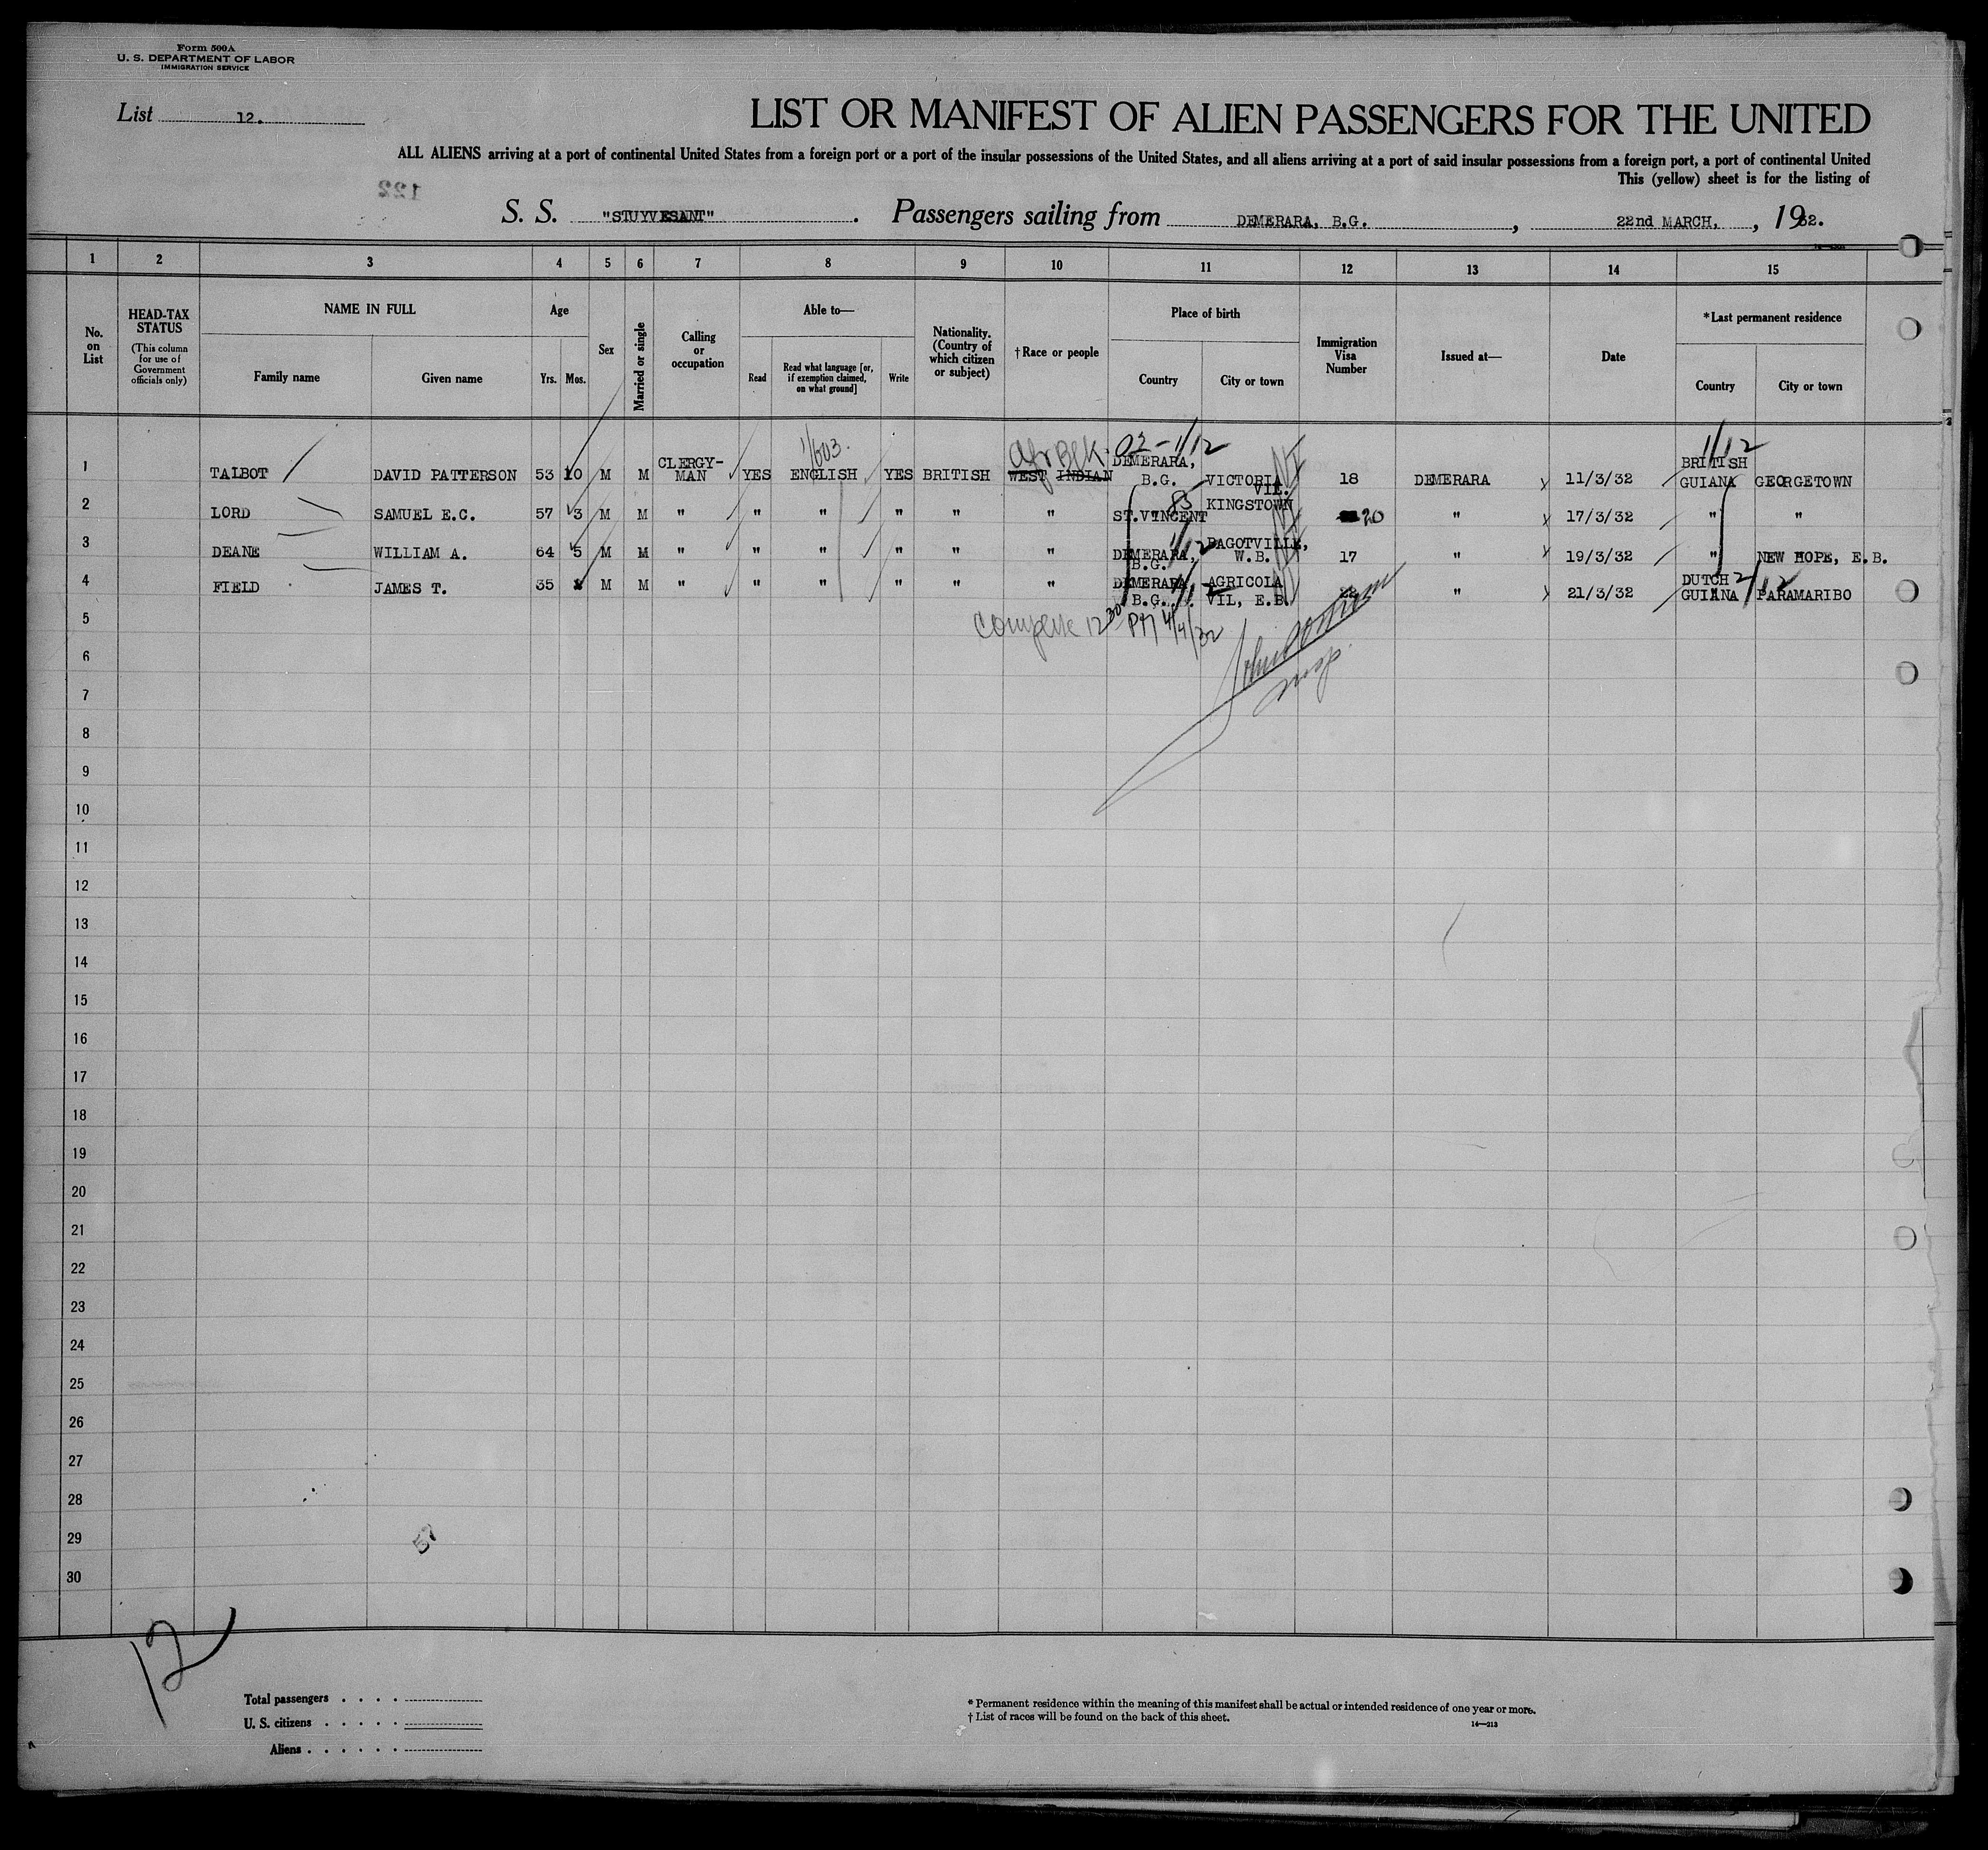 Form 500A
U. S. DEPARTMENT OF LABOR
IMMIGRATION SERVICE
List 12.
LIST OR MANIFEST OF ALIEN PASSENGERS FOR THE UNITED
ALL ALIENS arriving at a port of continental United States from a foreign port or a port of the insular possessions of the United States, and all aliens arriving at a port of said insular possessions from a foreign port, a port of continental United
This (yellow) sheet is for the listing of
122
S. S. "STUYVESANT" . Passengers sailing from DEMERARA, B.G. , 22nd MARCH. , 1932.
1 2 3 4 5 6 7 8 9 10 11 12 13 14 15
No. on List
HEAD-TAX STATUS
(This column for use of Government officials only)
NAME IN FULL
Family name Given name
Age
Yrs. Mos.
Sex
Married or single
Calling or occupation
Able to—
Read
Read what language [or, if exemption claimed, on what ground]
Write
Nationality. (Country of which citizen or subject)
†Race or people
Place of birth
Country City or town
Immigration Visa Number
Issued at—
Date
*Last permanent residence
Country City or town
1/603. Afr Blk. 02-1/12 1/12
1 TALBOT DAVID PATTERSON 53 10 M M CLERGY-MAN YES ENGLISH YES BRITISH WEST INDIAN DEMERARA, B.G. VICTORIA VIL. 18 DEMERARA 11/3/32 BRITISH GUIANA GEORGETOWN
2 LORD SAMUEL E.C. 57 3 M M " " " " " " ST.VINCENT 85 KINGSTOWN 20 " 17/3/32 " "
3 DEANE WILLIAM A. 64 5 M M " " " " " " DEMERARA, B.G. 1/12 BAGOTVILLE, W.B. 17 " 19/3/32 " NEW HOPE, E.B.
4 FIELD JAMES T. 35 M M " " " " " " DEMERARA B.G. 1/12 AGRICOLA VIL, E.B. 22 " 21/3/32 DUTCH GUIANA 2/12 PARAMARIBO
5
Complete 12 30 PM 4/4/32
6
Insp.
7
8
9
10
11
12
13
14
15
16
17
18
19
20
21
22
23
24
25
26
27
28
29
30
12
Total passengers . . . .
U. S. citizens . . . . .
Aliens . . . . . .
* Permanent residence within the meaning of this manifest shall be actual or intended residence of one year or more.
† List of races will be found on the back of this sheet.
14—213